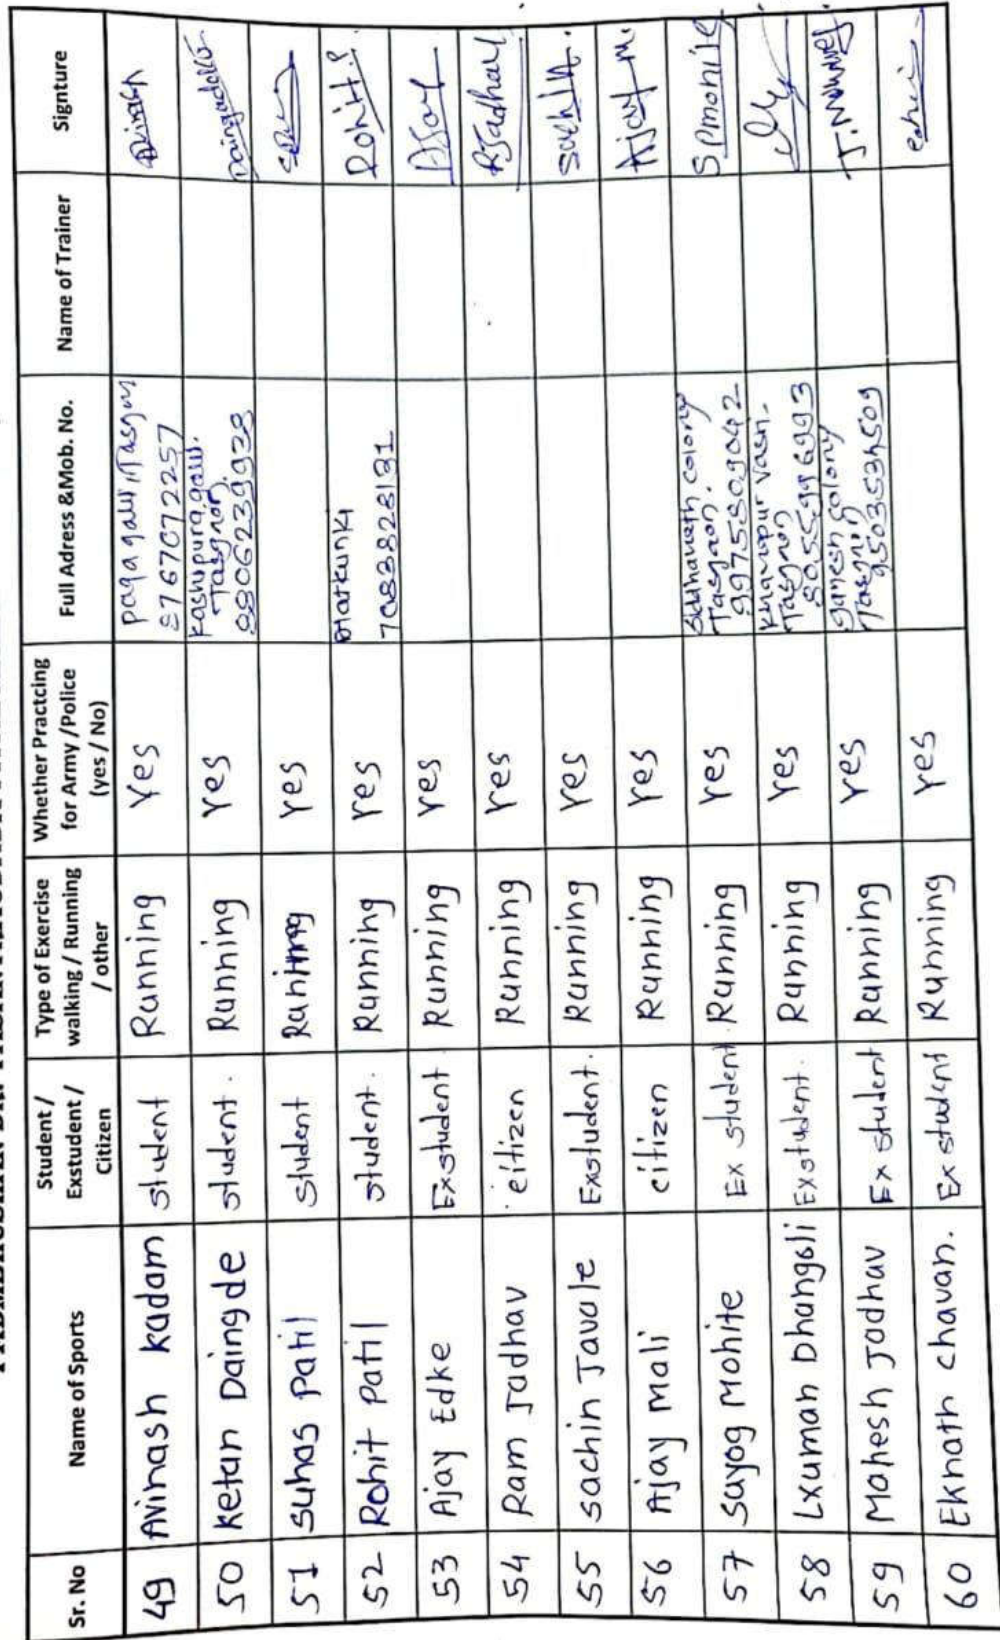 Sr. No Name of Sports Student / Exstudent / Citizen Type of Exercise walking / Running / other Whether Practcing for Army /Police (yes / No) Full Adress &Mob. No. Name of Trainer Signture
49 Avinash Kadam student Running Yes 8767072257
50 Ketan Daingde student. Running Yes Tasgaon.
51 Suhas Patil student Running Yes
52 Rohit Patil student. Running Yes 7083828131 Rohit.P
53 Ajay Edke Exstudent Running Yes Ajay
54 Ram Jadhav citizen Running Yes RJadhav
55 Sachin Javale Exstudent. Running Yes
56 Ajay Mali citizen Running Yes Ajay M.
57 Sayog Mohite Ex student Running Yes Siddhanath colony Tasgaon. 9975809042
58 Lxuman Dhangsli Exstudent. Running Yes Tasgaon
59 Mahesh Jadhav Ex student Running Yes ganesh colony Tasgaon 9503534509
60 Eknath chavan. Ex student Running Yes